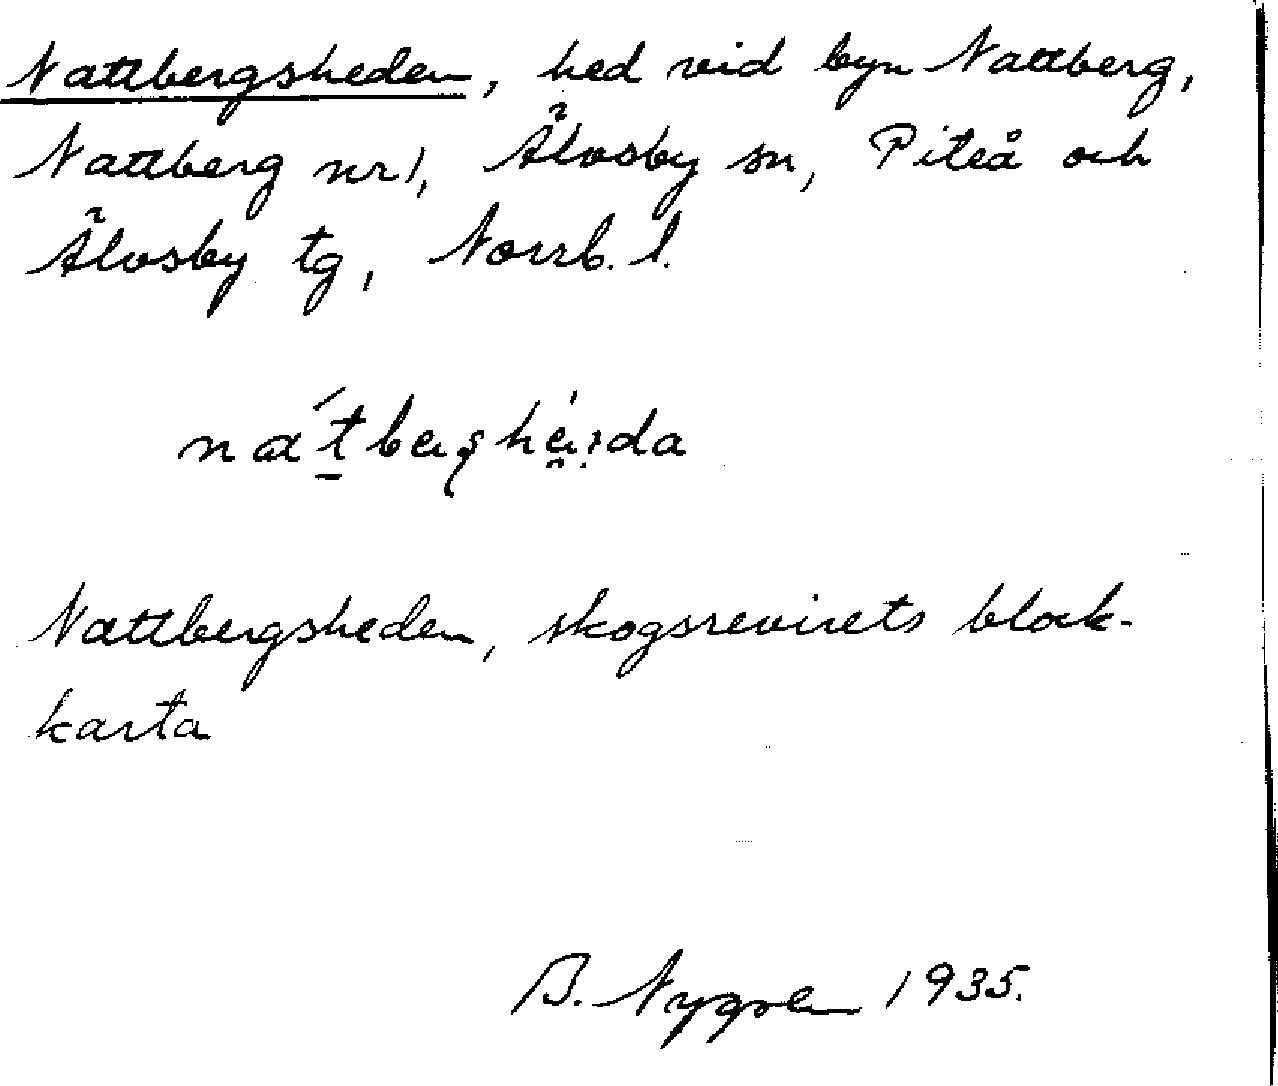 Nattbergsheden, hed vid byn Nattberg,
Nattberg nr 1, Älvsby sn, Piteå och
Älvsby tg, Norrb. l.
Nattbergsheden, skogsrevirets block-
karta
B. Nygren 1935.